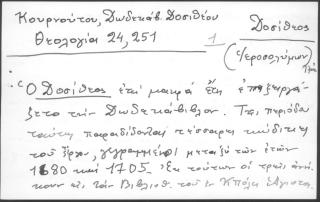 Κουρνούτου, Δωδεκάβ. Δοσιθέου
Δοσίθεος
Θεολογία 24, 251
1
(Ἱεροσολύμων)
Ὁ Δοσίθεος ἐπὶ μακρὰ ἔτη ἐπεξειργά-
ζετο τὴν Δωδεκάβιβλον. Τῆς περιόδου
ταύτης παραδίδονται τέσσαρες κώδικες
τοῦ ἔργου, γεγραμμένοι μεταξὺ τῶν ἐτῶν
1680 καὶ 1705. Ἐκ τούτων οἱ τρεῖς ἀνή-
κουν εἰς τὴν Βιβλιοθ. τοῦ ἐν Κ/πόλει Ἁγιοτ.